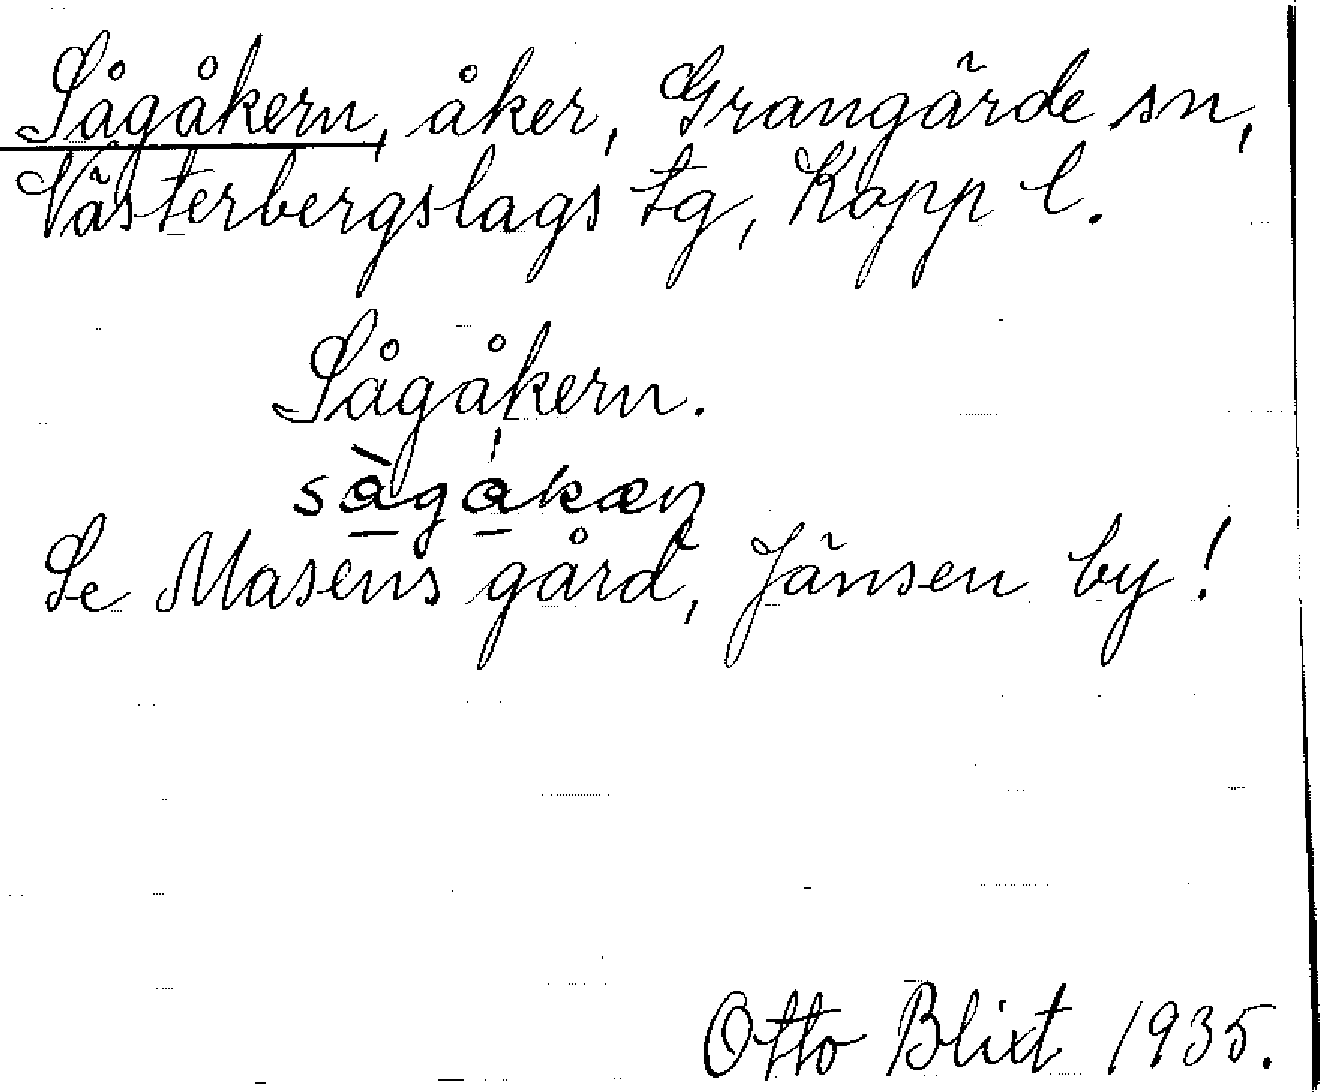 Sågåkern, åker, Grangärde sn,
Västerbergslags tg, Kopp l.
Sågåkern.
sàgakæn
Se Masens gård, Jänsen by!
Otto Blixt 1935.